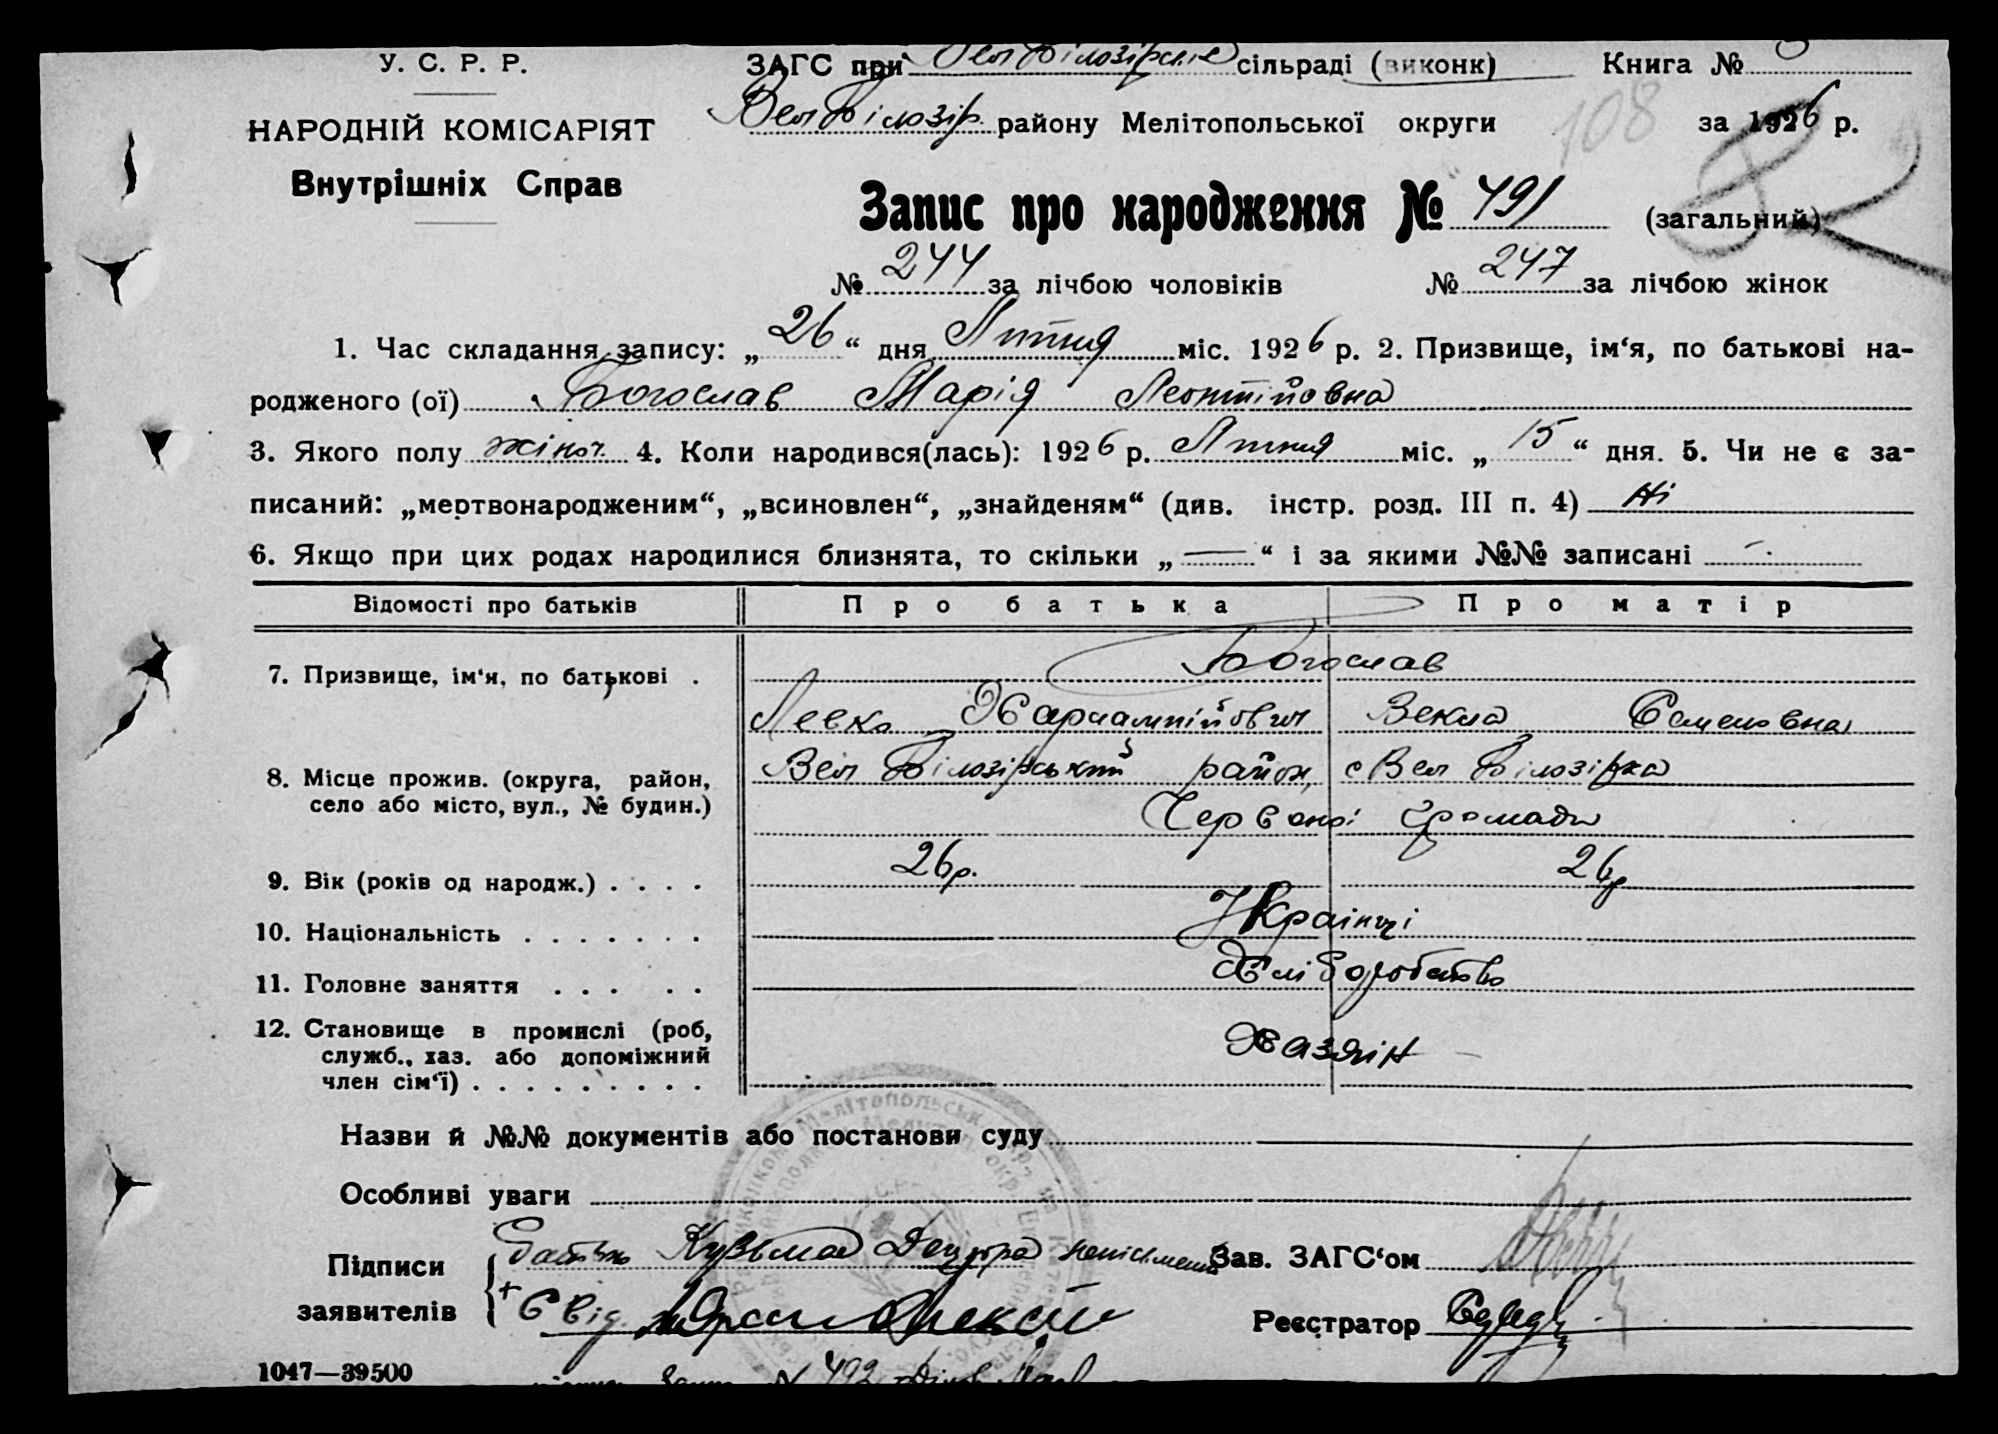 У. С. Р. Р.
ЗАГС при Вел Білозірські сільраді (виконк) Книга №
НАРОДНІЙ КОМІСАРІЯТ
Вел Білозір. району Мелітопольської округи
108
за 1926 р.
Внутрішніх Справ
82
Запис про народження № 491 (загальний)
№ 244 за лічбою чоловіків № 247 за лічбою жінок
1. Час складання запису: „ 26 “ дня Липня міс. 1926 р. 2. Призвище, ім‘я, по батькові на-
родженого (ої) Богослав Марія Леонтійовна
3. Якого полу жіноч. 4. Коли народився(лась): 1926 р. Липня міс. „ 15 “ дня. 5. Чи не є за-
писаний: „мертвонародженим“, „всиновлен“, „знайденям“ (див. інстр. розд. III п. 4) Ні
6. Якщо при цих родах народилися близнята, то скільки „ — “ і за якими №№ записані -
Відомості про батьків Про батька Про матір
7. Призвище, ім‘я, по батькові . Богослав
Левко Харлампійович Векла Семеновна
8. Місце прожив. (округа, район, село або місто, вул., № будин.) Вел Білозірський район, с Вел Білозірка
Червоної громади
9. Вік (років од народж.) . . . . 26 р. 26 р
10. Національність . . . . . . . Українці
11. Головне заняття . . . . . Хліборобство
12. Становище в промислі (роб, служб., хаз. або допоміжний член сім‘ї) . . . . . . . . . Хазяїн
Назви й №№ документів або постанови суду
Особливі уваги
Підписи заявителів
батько Кузьма неписьменний
Зав. ЗАГС‘ом
+ Свід. Алексій
Реєстратор
1047—39500
N 492